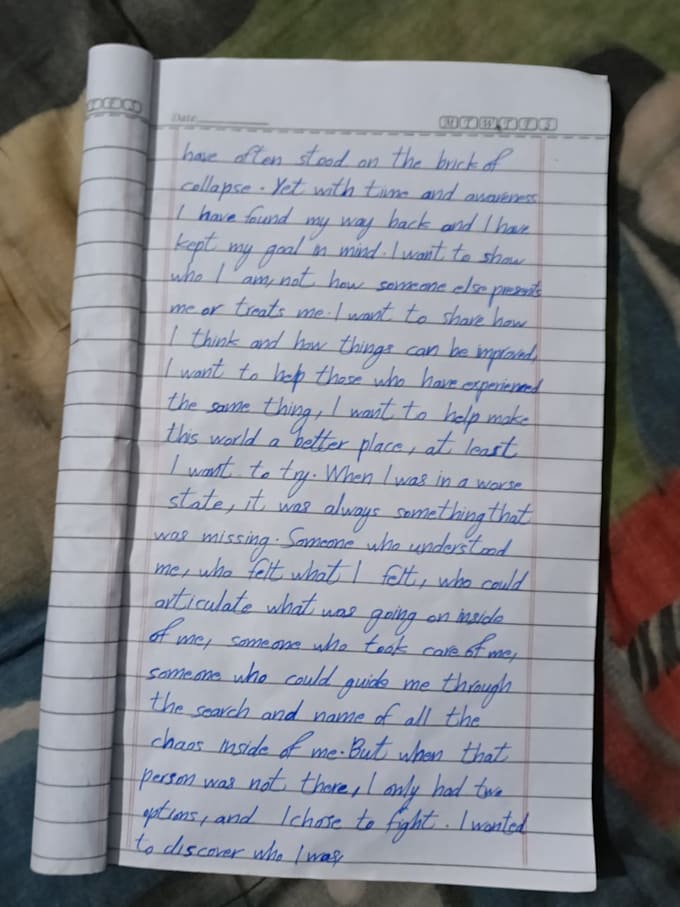 Date
M T W T F S
have often stood on the brick of
collapse. Yet with time and awareness
I have found my way back and I have
kept my goal in mind. I want to show
who I am, not how someone else presents
me or treats me. I want to share how
I think and how things can be improved,
I want to help those who have experienced
the same thing, I want to help make
this world a better place, at least
I want to try. When I was in a worse
state, it was always something that
was missing. Someone who understood
me, who felt what I felt, who could
articulate what was going on inside
of me, someone who took care of me,
someone who could guide me through
the search and name of all the
chaos inside of me. But when that
person was not there, I only had two
options, and I chose to fight. I wanted
to discover who I was,